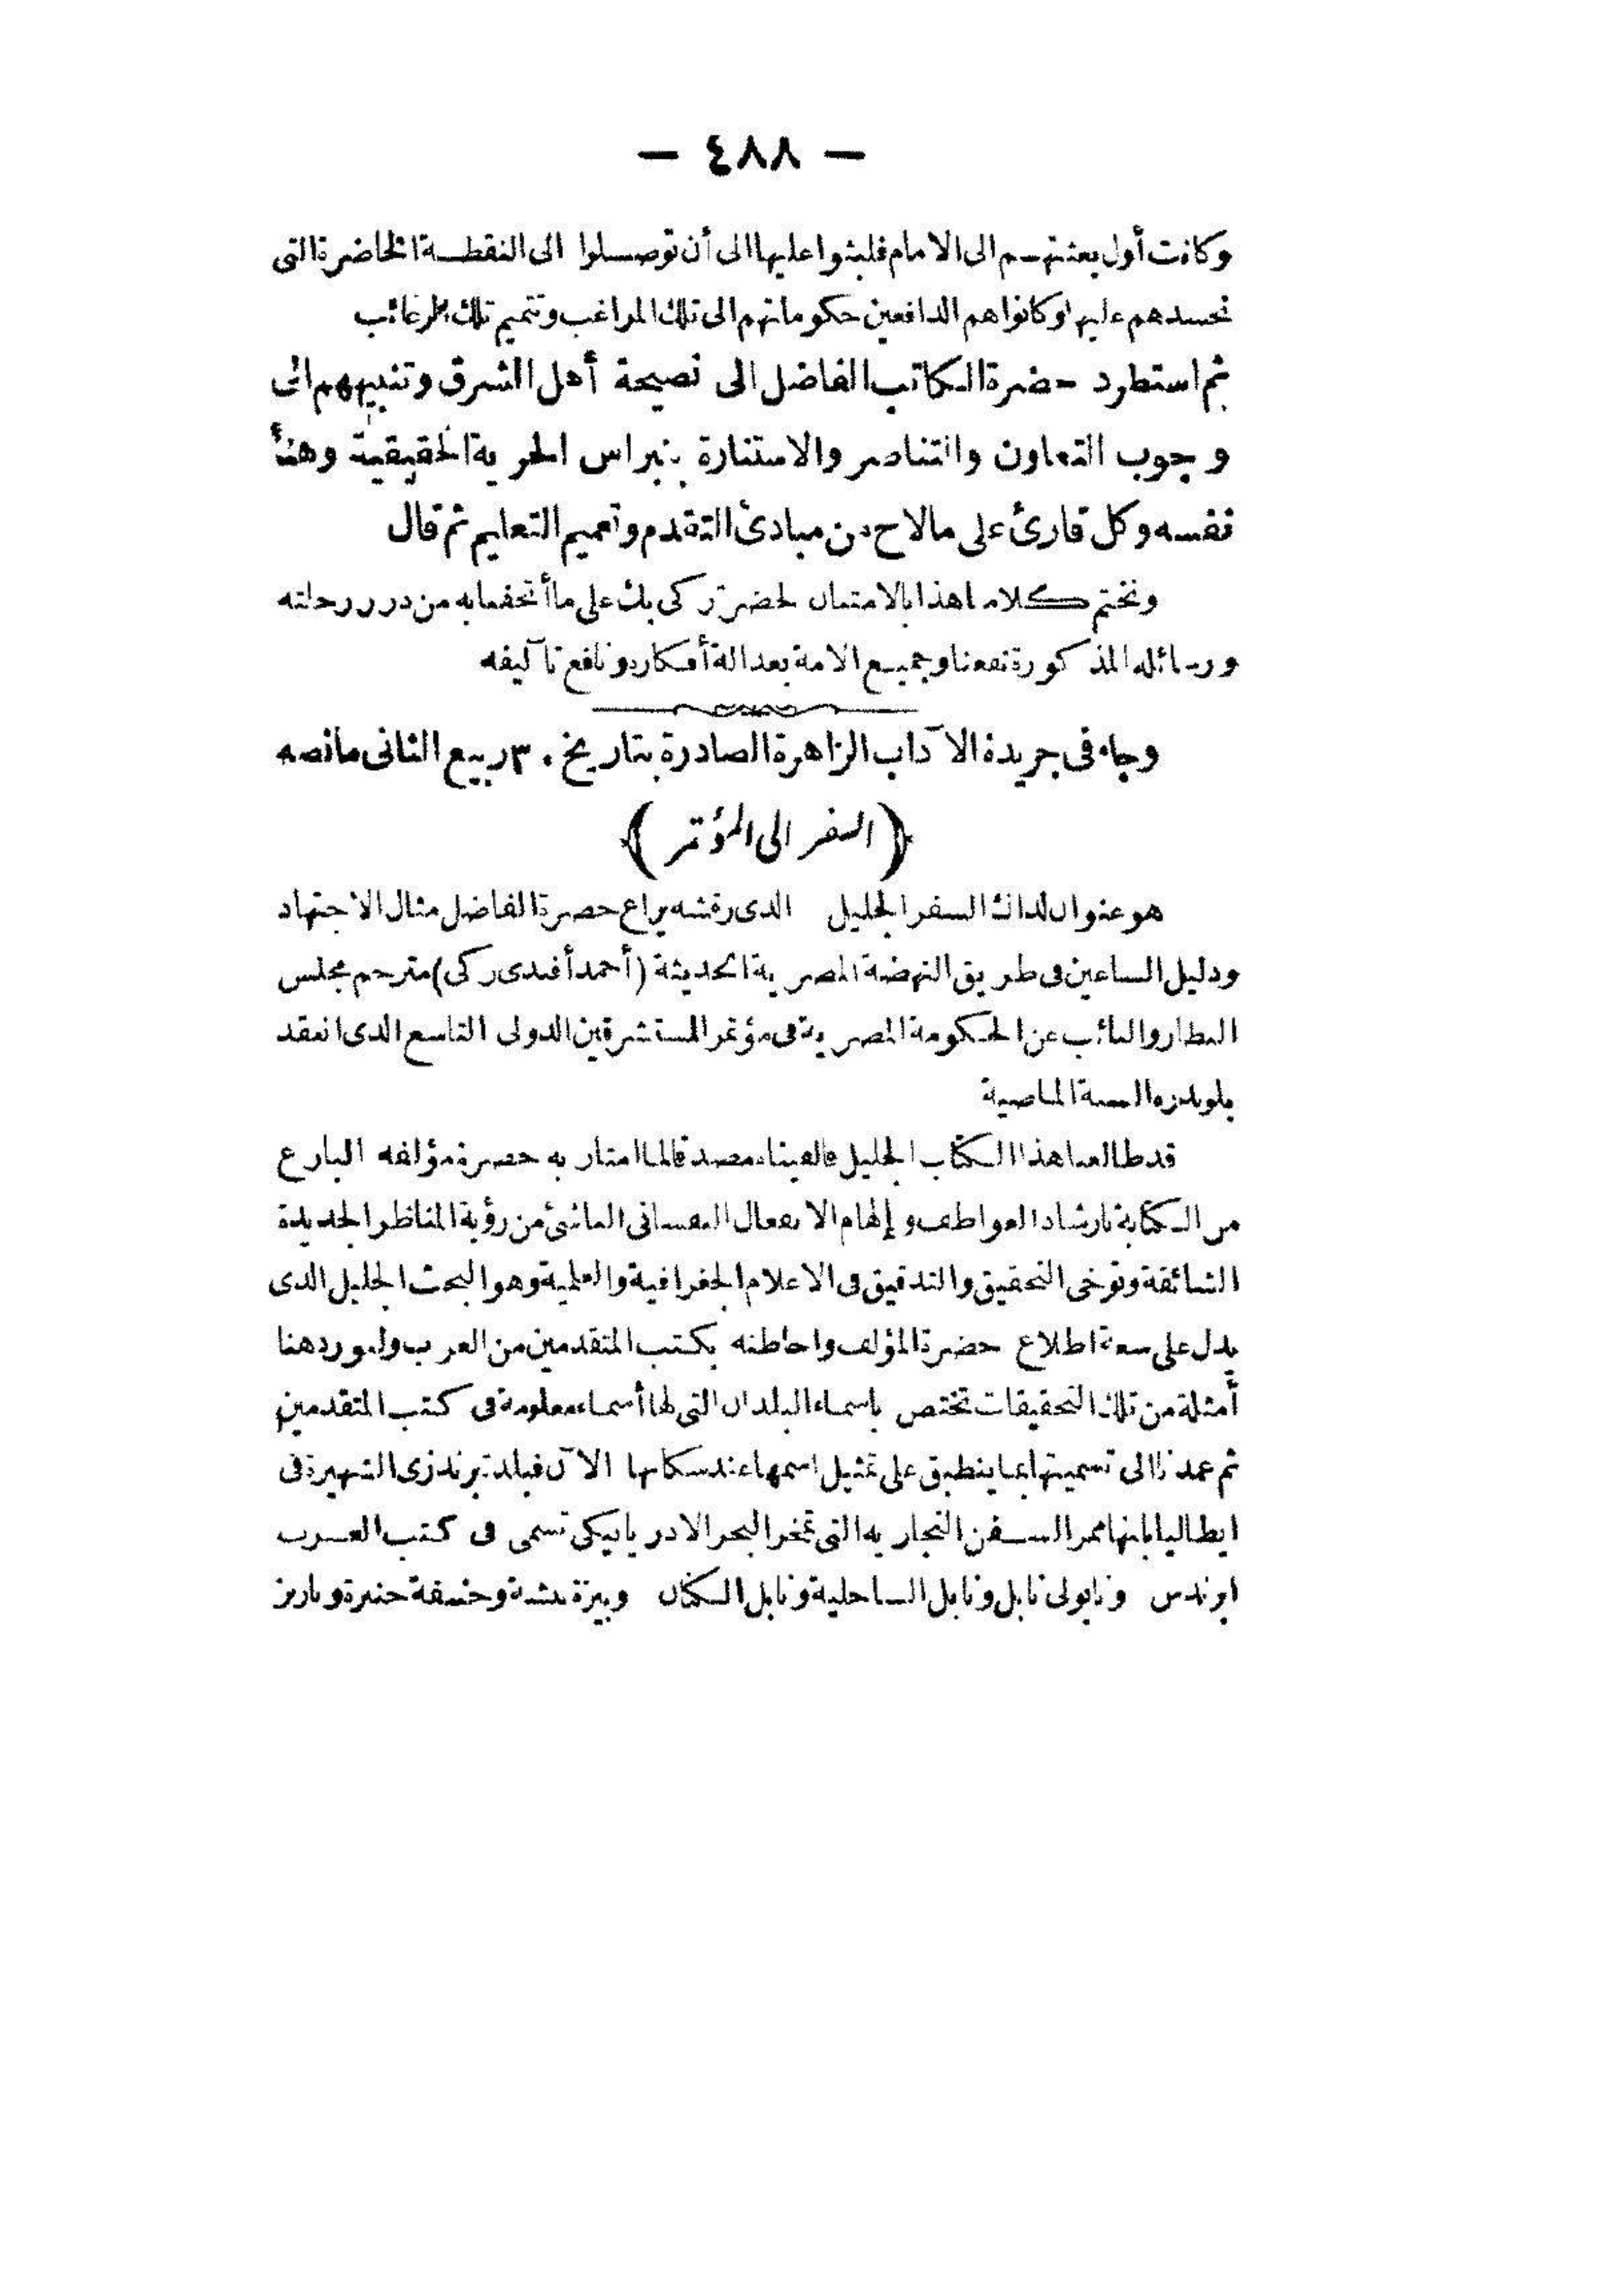 — ٤٨٨ —
وكانت أول بعثتهم الى الامام فلبثوا عليها الى أن توصلوا الى النقطة الحاضرة التى
نحسدهم عليها وكانوا هم الدافعين حكوماتهم الى تلك المراغب وتتميم تلك الرغائب
ثم استطرد حضرة الكاتب الفاضل الى نصيحة أهل الشرق وتنبيههم الى
وجوب التعاون والتناصر والاستنارة بنبراس الحرية الحقيقية وهنأ
نفسه وكل قارئ على مالاح من مبادئ التقدم وتعميم التعليم ثم قال
ونختم كلامنا هذا بالامتنان لحضرة زكى بك على ما أتحفنا به من درر رحلته
ورسائله المذكورة نفعنا وجميع الامة بعدالة أفكاره ونافع تآليفه
وجاء فى جريدة الآداب الزاهرة الصادرة بتاريخ ٣٠ ربيع الثانى مانصه
﴿ السفر الى المؤتمر ﴾
هو عنوان لذلك السفر الجليل الذى رقشه يراع حضرة الفاضل مثال الاجتهاد
ودليل الساعين فى طريق النهضة المصرية الحديثة (أحمد أفندى زكى) مترجم مجلس
النظار والنائب عن الحكومة المصرية فى مؤتمر المستشرقين الدولى التاسع الذى انعقد
بلوندره السنة الماضية
قد طالعنا هذا الكتاب الجليل فالفيناه مصدقا لما امتاز به حضرة مؤلفه البارع
من الكتابة بارشاد العواطف وإلهام الانفعال النفسانى الناشئ من رؤية المناظر الجديدة
الشائقة وتوخى التحقيق والتدقيق فى الاعلام الجغرافية والعلمية وهو البحث الجليل الذى
يدل على سعة اطلاع حضرة المؤلف واحاطته بكتب المتقدمين من العرب ولنورد هنا
أمثلة من تلك التحقيقات تختص باسماء البلدان التى لها أسماء معلومة فى كتب المتقدمين
ثم عمدنا الى تسميتها بما ينطبق على تمثيل اسمها عند سكانها الآن فبلدة برندزى الشهيرة فى
ايطاليا بانها ممر السفن التجاريه التى تمخر البحر الادرياتيكى تسمى فى كتب العرب
ابرندس ونابولى نابل ونابل الساحلية ونابل الكتان وبيزة بيشة وجنيفة جنبرة وباريز